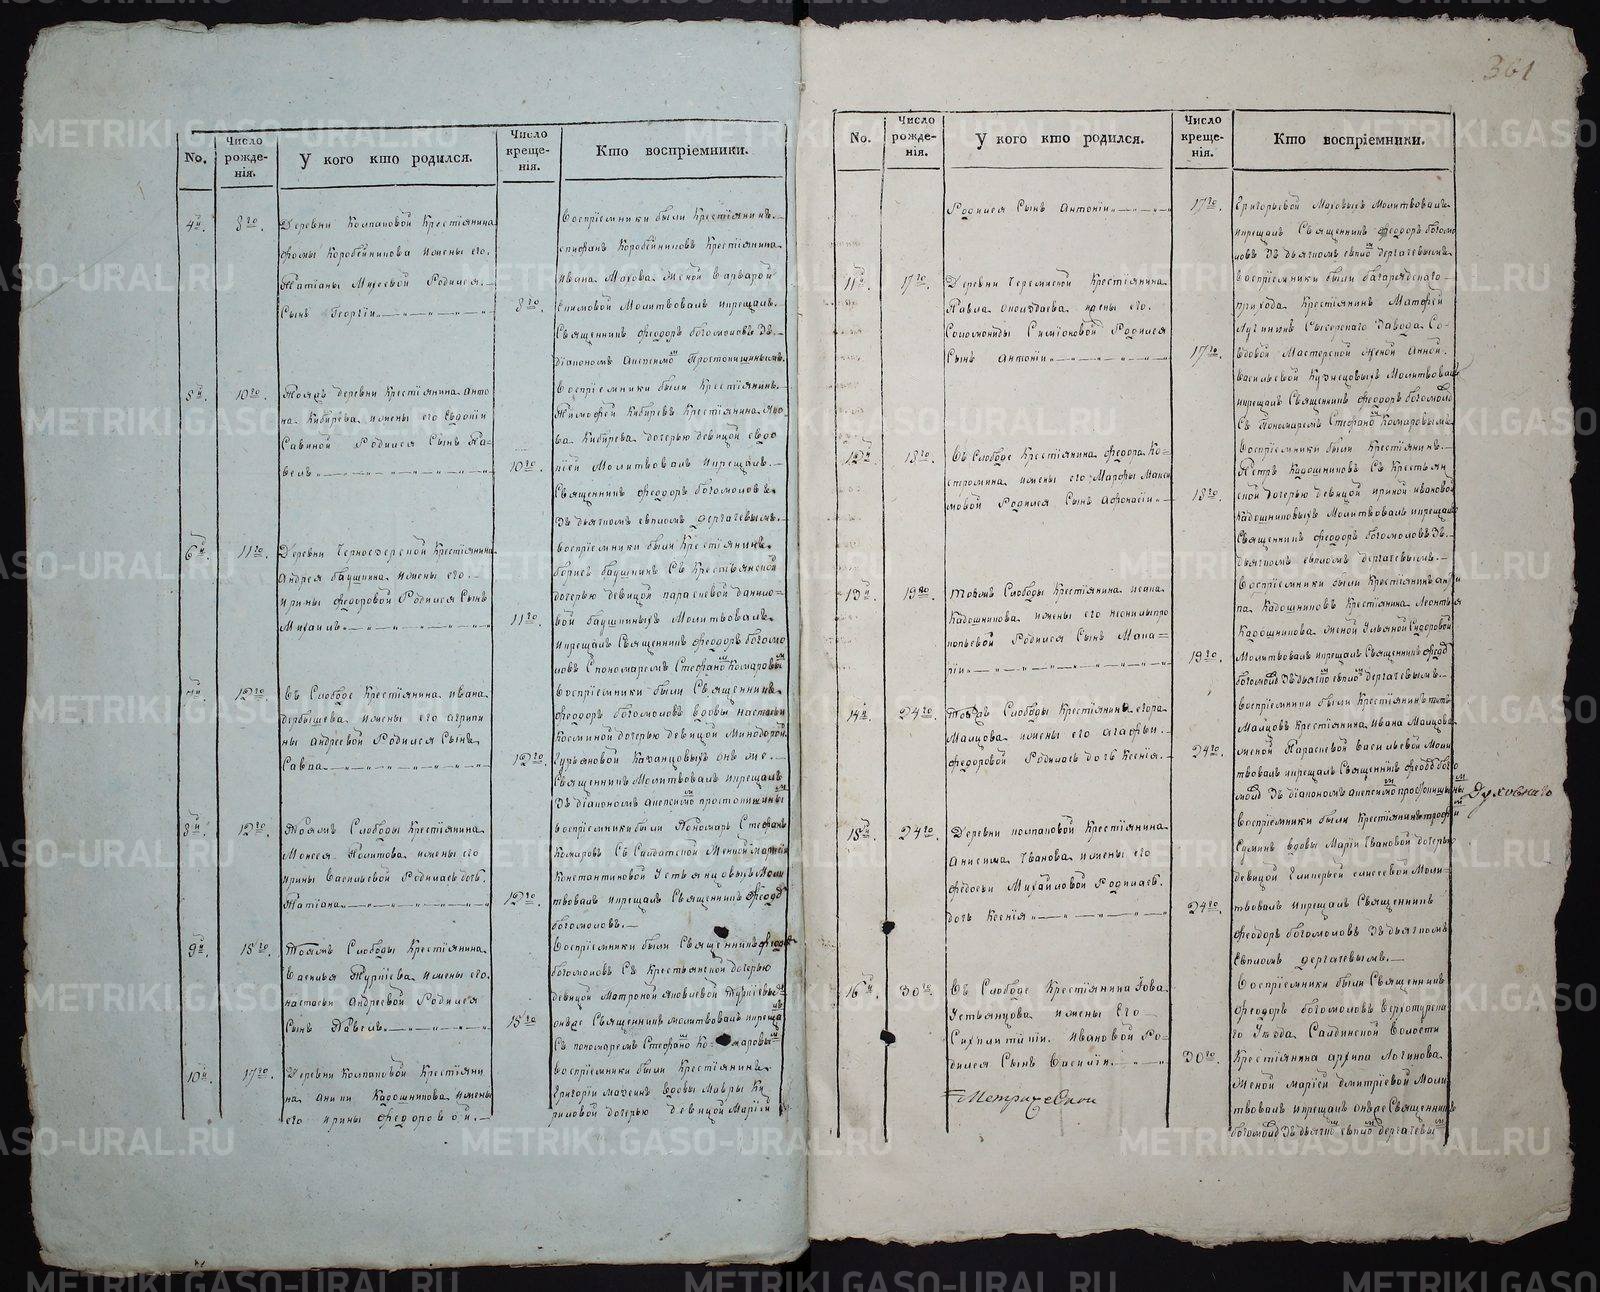 No.
Число рожденія.
У кого кто родился.
Число крещенія.
Кто воспріемники.
4й. 8го. Деревни Колпаковой Крестіянина
Фомы Коробейникова и жены его.
Татіаны Михеевой Родился.
Сынъ Георгіи
8го.
Воспріемники были Крестіянинъ.
Коробейниковъ Крестіянина
Ивана Махова женой Варварой
Молитвовалъ и крещалъ.
Священникъ Феодоръ Богомоловъ Зъ
діакономъ
5й. 10го. Деревни Крестіянина Анто
на Кибирева и жены его Евдокіи
Савиной Родился Сынъ Па=
велъ
10го.
Воспріемники были Крестіянинъ.
Тимофей Кибиревъ Крестіянина Яко
ва Кибирева дочерью девицой Евдо
кіей Молитвовалъ и крещалъ.
Священникъ Феодоръ Богомоловъ.
Зъ дьячкомъ Евпломъ Дергачевымъ.
6й. 11го. Деревни Крестіянина
Андрея Баушкина и жены его.
Ирины Федоровой Родился Сынъ
Михаилъ
11го.
Воспріемники были Крестіянинъ.
Борисъ Баушкинъ Съ Крестьянской
дочерью девицой Параскевой Данило=
вой Баушкиныхъ Молитвовалъ.
и крещалъ Священникъ Феодоръ Богомо
ловъ С пономаремъ Стефаномъ Комаровым
7й. 12го. Въ Слободе Крестіянина Ивана
Дербышева и жены его Агрипи
ны Андреевой Родился Сынъ
Савва
12го.
Воспріемники были Священникъ
Феодоръ Богомоловъ вдовы Настасьи
Косминой дочерью девицой Минодорой
Гурьяновой Казанцовыхъ онъ же
Священникъ Молитвовалъ и крещалъ
Зъ діакономъ
8й. 12го. Слободы Крестіянина
Моисея и жены его
Ирины Васильевой Родилась дочь.
Татіана
12го.
Воспріемники были Пономарь Стефанъ
Комаровъ Съ Салдатской женой Маріей
Константиновой Устьянцовыхъ Моли
твовалъ и крещалъ Священникъ Феодоръ
Богомоловъ.
9й. 15го. Слободы Крестіянина
Василья и жены его.
Настасьи Андреевой Родился
Сынъ Павелъ
15го
Воспріемники были Священникъ Феодоръ
Богомоловъ Съ Крестьянской дочерью
девицой Матроной Яковлевой
онъ же Священникъ молитвовалъ и креща
Съ пономаремъ Стефаномъ Комаровым
10й. 17го. Деревни Колпаковой Крестіяни
на Кадошникова и жены
его Ирины Федоровой.
Воспріемники были Крестіянинъ
Григоріи вдовы Мавры Ки
риловой дочерью девицой Маріей
361
No.
Число рожденія.
У кого кто родился.
Число крещенія.
Кто воспріемники.
Родился Сынъ Антоніи
17го.
Григорьевой Маховыхъ Молитвовалъ
и крещалъ Священникъ Феодоръ Богомо
ловъ Зъ дьячкомъ Евпломъ Дергачевымъ
11й. 17го. Деревни Крестіянина
Павла и жены его.
Соломониды Симіоновой Родился
Сынъ Антоніи
17го.
Воспріемники были Багарядского
прихода Крестіянинъ Матфей
Лучинкин Сысерскаго Завода Со-
Мастерской женой Анной.
Васильевой Кузнецовыхъ Молитвовалъ
и крещалъ Священникъ Феодоръ Богомолов
Съ Пономаремъ Стефаномъ Комаровымъ
12й. 18го. Въ Слободе Крестіянина Федора Ко=
стромина и жены его Марфы Макси
мовой Родился Сынъ Афонасіи
18го.
Воспріемники были Крестіянинъ.
Петръ Кадошниковъ Съ Крестьян
ской дочерью девицой Ириной Ивановой
Кадошниковыхъ Молитвовалъ и крещалъ
Священникъ Феодоръ Богомоловъ Зъ.
дьячкомъ Евпломъ Дергачевымъ.
13й. 19го. Слободы Крестіянина Исака
Кадошникова и жены его Неонилы Про
копьевой Родился Сынъ Мака=
ріи
19го.
Воспріемники были Крестіянинъ
Кадошниковъ Крестіянина Леонтья
Кадошникова женой Ульяной Сидоровой
Молитвовалъ и крещалъ Священникъ Феод
Богомолов Зъ дьячком Евплом Дергачевымъ.
14й. 24го. Слободы Крестіянина Егора
Малцова и жены его Агафьи.
Федоровой Родилась дочь Ксенія.
24го.
Воспріемники были Крестіянинъ
Малцовъ Крестіянина Ивана Малцова
женой Параскевой Васильевой Моли
твовалъ и крещалъ Священникъ Феодоръ Бого
молов Зъ діакономъ
Духовнаго
15й. 24го. Деревни Колпаковой Крестіянина
Анисима Иванова и жены его
Федосьи Михайловой Родилась.
дочь Ксенія
24го.
Воспріемники были Крестіянинъ
вдовы Маріи Ивановой дочерью
девицой Гликерьей Елисеевой Моли
твовалъ и крещалъ Священникъ
Феодоръ Богомоловъ Зъ дьячкомъ
Евпломъ Дергачевымъ.
16й. 30го. Въ Слободе Крестіянина Іова
Устьянцова и жены Его
Ивановой Ро=
дился Сынъ Василіи
30го.
Воспріемники были Священникъ
Феодоръ Богомоловъ Верхотурска
го Уезда Салдинской Волости
Крестіянина Архипа Логинова
женой Маріей Дмитріевой Моли
твовалъ и крещалъ онъ же Священникъ
Богомолов Зъ дьячком Евплом Дергачевым